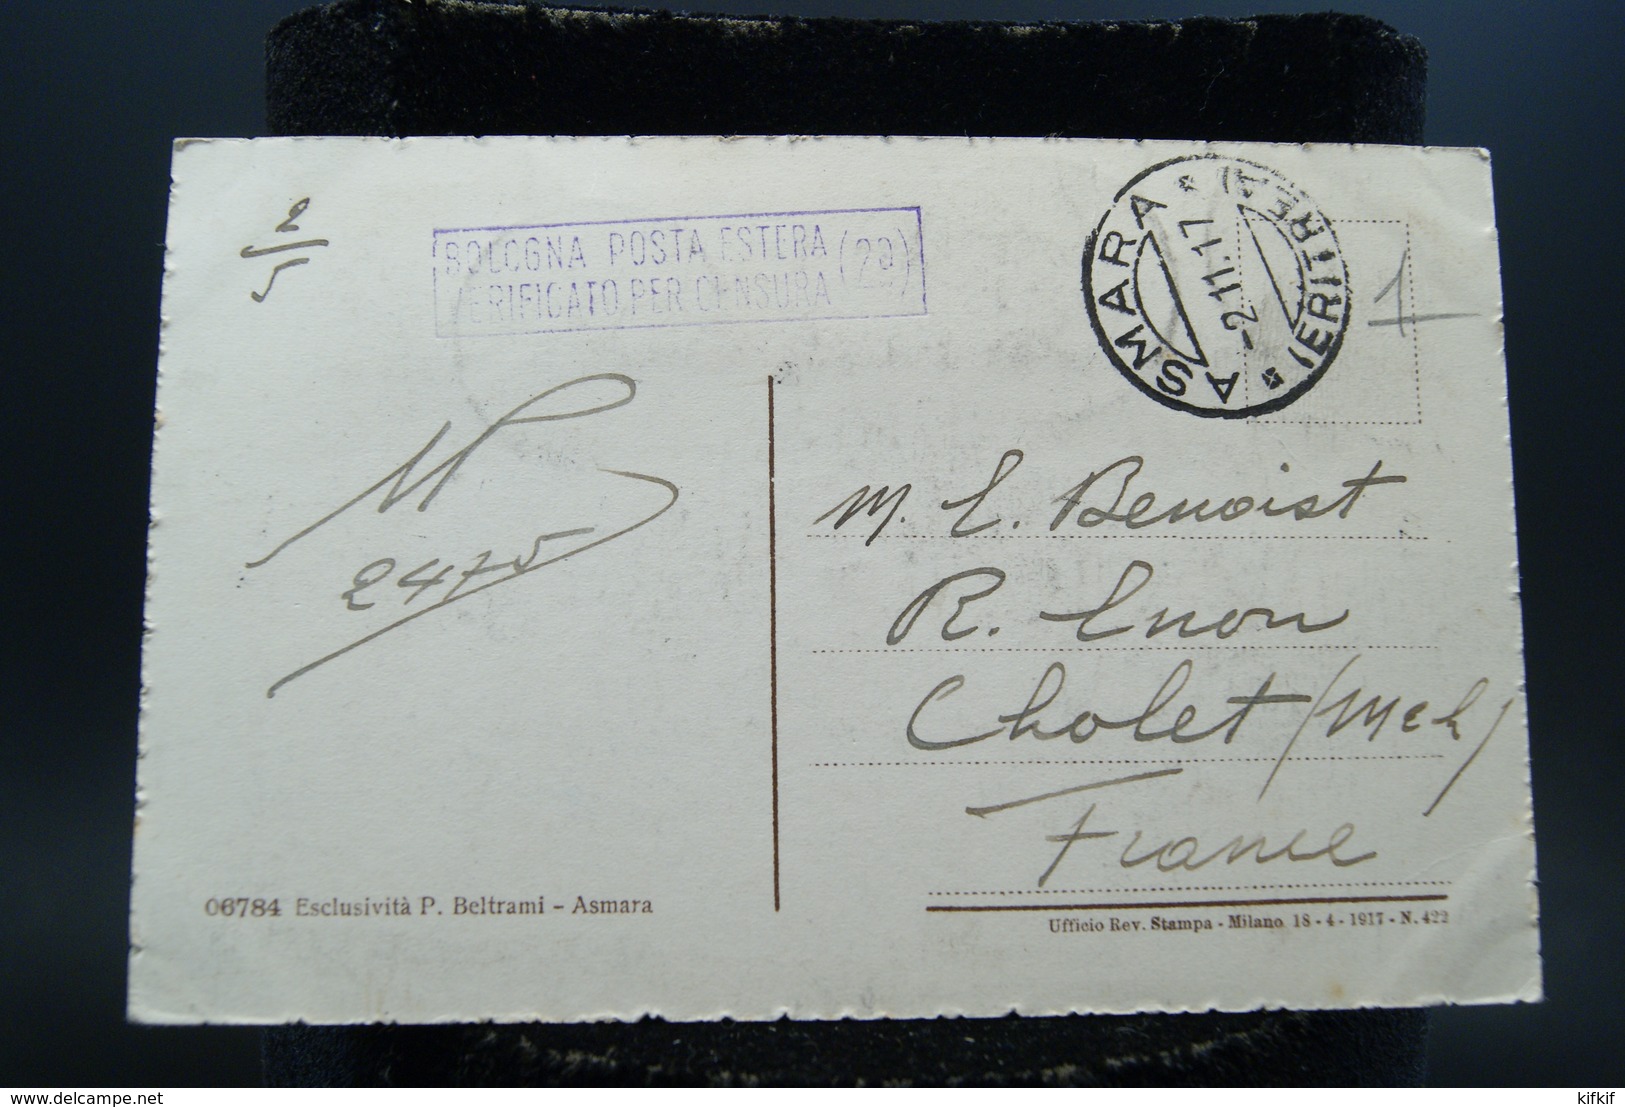 2/5
BOLOGNA POSTA ESTERA
VERIFICATO PER CENSURA (2a)
ASMARA * (ERITREA) *
-2.11.17
1
2475
M. E. Benoist
R. Enon
Cholet (M et L)
France
06784 Esclusività P. Beltrami - Asmara
Ufficio Rev. Stampa - Milano 18-4-1917 - N. 422
delcampe.net
kifkif